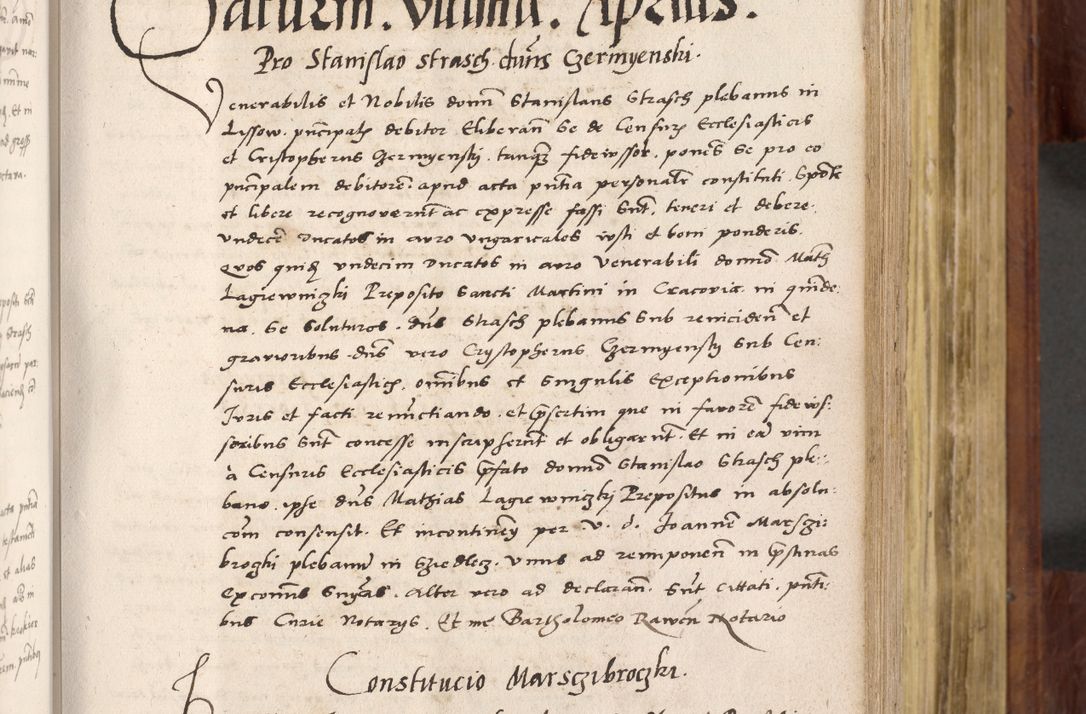 Pro Stanislao Strasch. ctra dns Czermyenski.
Venerabilis et Nobilis domi Stanislaus Strasch plebanus in
Lissow. pncipal debitor Eliberan Se de Censur Ecclesiasticis
et Cristopherus Czermyensky. tanqz fideiussor. ponens Se pro eo
pncipalem debitore. apud acta pntia personalr constituti Sponte
et libere recognoverunt ac expresse fassi Sunt. teneri et debere.
Undece Ducatos in auro Ungaricales iusti et boni ponderis.
Quos quidz undecim Ducatos in auro Venerabili domino Math
Lagiewniczki Preposito Sancti Martini in Cracovia in quinde:
na. Se Soluturos. dns Strasch plebanus Sub reinciden et
gravioribus. dns vero Crystopherus Czermyensky Sub Cen:
suris Ecclesiasticz. omibus et Singulis Exceptionibus
Juris et facti renuctiando. et psertim que in favore fideius:
soribus Sunt concesse inscripserunt et obligarunt. Et in ea vim
à Censuris Ecclesiasticis pfato domino Stanislao Strasch ple:
bano. ipse dns Mathias Lagiewniczky Prepositus in absolu:
com consensit. Et incontinenti per V. d. Joannem Marszi:
brogki plebanu in Sziedlecz. Unus ad reimponen in pstinas
Excomis Snyas. Alter vero ad declaran. Sunt Cittati. pnti:
bus Curie Notarys. Et me Bartholomeo Rawen Notario
Constitucio Marsczibroczki.